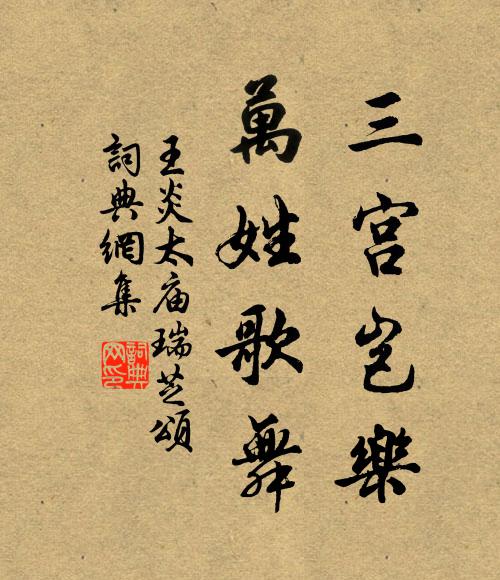 三宫岂樂
萬姓歌舞
王炎太庙瑞芝頌
詞典網集
詞典网印